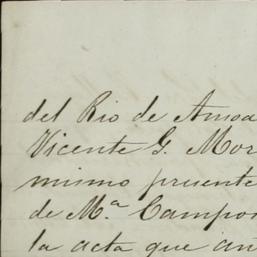 del Rio de Amoa
Vicente G. Mor
mismo presente
de M.ª Campos
la acta que an